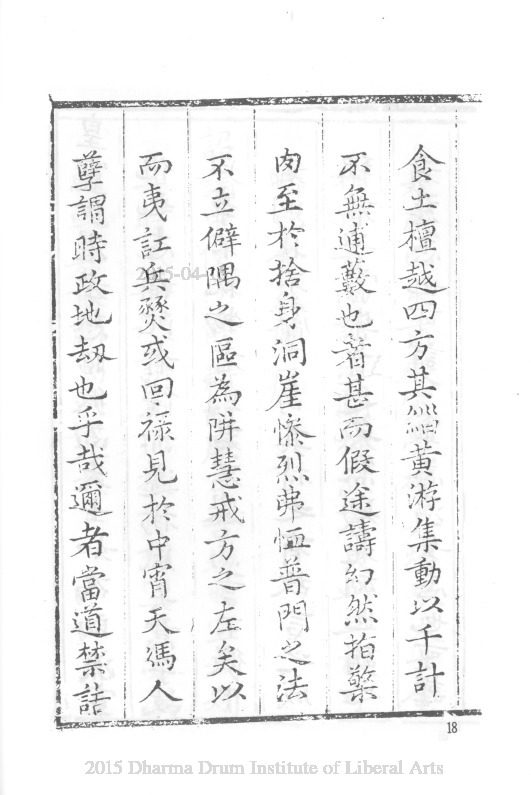 食土檀越四方其緇黃游集動以千計
不無逋藪也者甚而假途譸幻然指檠
肉至於捨身洞崖慘烈弗恤普門之法
不立僻隅之區為阱慧戒方之左矣以
而夷訌兵燹或回祿見於中宵天馮人
孽謂時政地劫也乎哉邇者當道禁詰
18
2015 Dharma Drum Institute of Liberal Arts